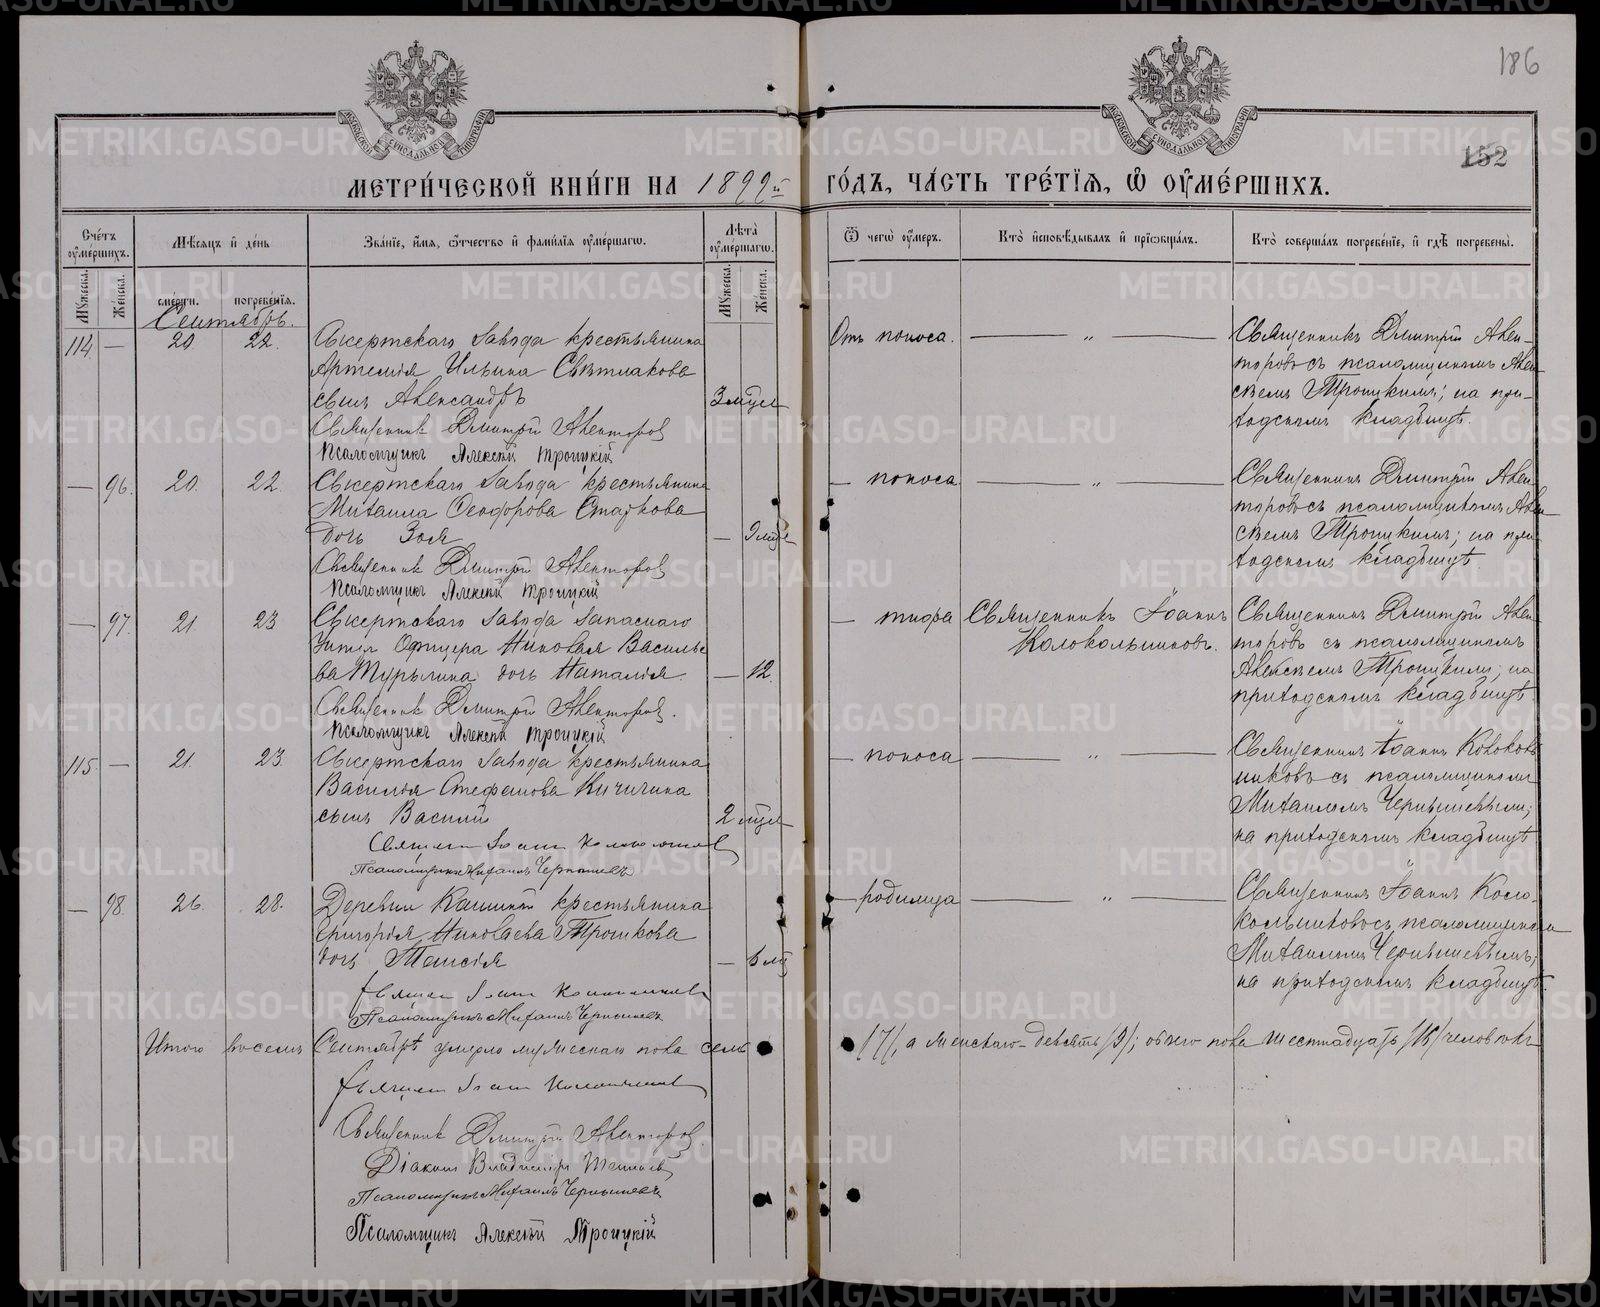 186
152
МЕТРИ́ЧЕСКОЙ КНИ́ГИ НА 1899й ГО́ДЪ, ЧА́СТЬ ТРЕ́ТІѦ, Ѽ ОУ҆МЕ́РШИХЪ.
Сче́тъ оу҆ме́ршихъ.
Мѣ́сяцъ и҆ де́нь
Зва́нїе, и҆́мя, ѻ҆́тчество и҆ фами́лїя оу҆ме́ршагѡ.
Лѣ́та оу҆ме́ршагѡ.
Ѿ чегѡ̀ оу҆́меръ.
Кто̀ и҆сповѣ́дывалъ и҆ прїѡбща́лъ.
Кто̀ соверша́лъ погребе́нїе, и҆ гдѣ̀ погребены̀.
Мꙋ́жеска.
Же́нска.
сме́рти.
погребе́нїя.
Мꙋ́жеска.
Же́нска.
Сентябрь.
114 — 20 22. Сысертскаго завода крестьянина
Артемія Ильина Свѣтлакова
сынъ Александръ 3 мѣся
Священникъ Дмитрій Авенторовъ
Псаломщикъ Алексѣй Троицкій
Отъ поноса. — „ —
Священникъ Дмитрій Авен-
торовъ съ псаломщикомъ Алек
сѣемъ Троицкимъ; на при-
ходскомъ кладбищѣ.
— 96. 20. 22. Сысертскаго завода крестьянина
Михаила Ѳеодорова Старкова
дочь Зоя — 9 мѣся
Священникъ Дмитрій Авенторовъ
Псаломщикъ Алексѣй Троицкій
— поноса — „ —
Священникъ Дмитрій Авен
торовъ съ псаломщикомъ Алек
сѣемъ Троицкимъ; на при
ходскомъ кладбищѣ.
— 97. 21 23 Сысертскаго завода запаснаго
Унтеръ Офицера Николая Василье
ва Турыгина дочь Наталія. — 12.
Священникъ Дмитрій Авенторовъ.
Псаломщикъ Алексѣй Троицкій
— тифа
Священникъ Іоаннъ
Колокольниковъ.
Священникъ Дмитрій Авен
торовъ съ псаломщикомъ
Алексѣемъ Троицкимъ; на
приходскомъ кладбищѣ.
115. — 21. 23. Сысертскаго завода крестьянина
Василія Стефанова Кичигина
сынъ Василій 2 мѣся
Священ Іоаннъ Колокольниковъ
Псаломщикъ Михаилъ Чернышевъ
— поноса — „ —
Священникъ Іоаннъ Колоколь
никовъ съ псаломщикомъ
Михаиломъ Чернышевымъ;
на приходскомъ кладбищѣ
— 98. 26. 28. Деревни Кашиной крестьянина
Григорія Николаева Трошкова
дочь Таисія —
Священ Іоаннъ Колокольниковъ
Псаломщикъ Михаилъ Чернышевъ
— родимца — „ —
Священникъ Іоаннъ Коло-
кольниковъ съ псаломщикомъ
Михаиломъ Чернышевымъ;
на приходскомъ кладбищѣ.
Итого восемь Сентябрѣ умерло мужескаго пола семь /7/, а женскаго девять /9/; обоего пола шестнадцать /16/ человѣкъ
Священ Іоаннъ Колокольниковъ
Священникъ Дмитрій Авенторовъ.
Діаконъ Владиміръ
Псаломщикъ Михаилъ Чернышевъ
Псаломщикъ Алексѣй Троицкій
METRIKI.GASO-URAL.RU